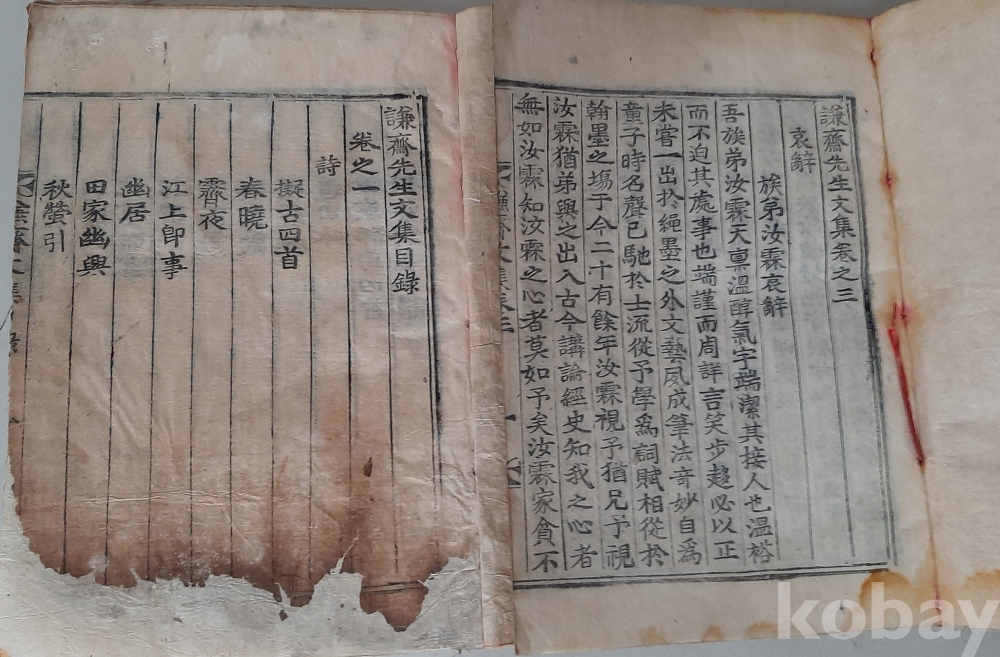 謙齋先生文集目錄
卷之一
詩
擬古四首
春曉
霽夜
江上卽事
幽居
田家幽興
秋螢引
謙齋先生文集卷之三
哀辭
族弟汝霖哀辭
吾族弟汝霖天禀溫醇氣宇端潔其接人也溫裕
而不迫其處事也端謹而周詳言笑步趍必以正
未嘗一出於繩墨之外文藝夙成筆法奇妙自爲
童子時名聲已馳於士流從予學爲詞賦相從於
翰墨之塲于今二十有餘年汝霖視予猶兄予視
汝霖猶弟與之出入古今講論經史知我之心者
無如汝霖知汝霖之心者莫如予矣汝霖家貧不
kobay